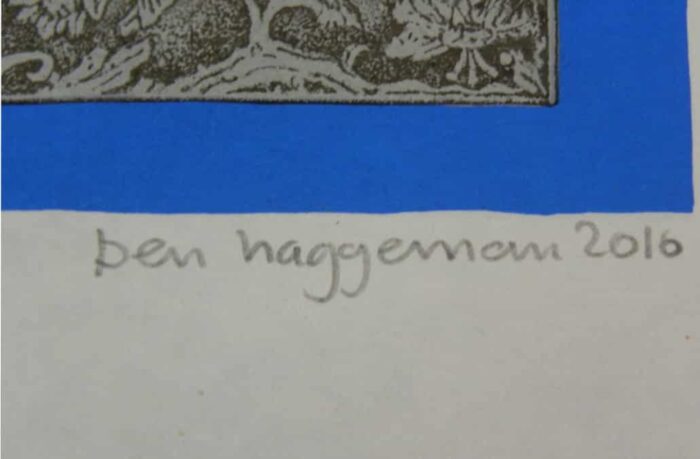 ben haggeman 2016